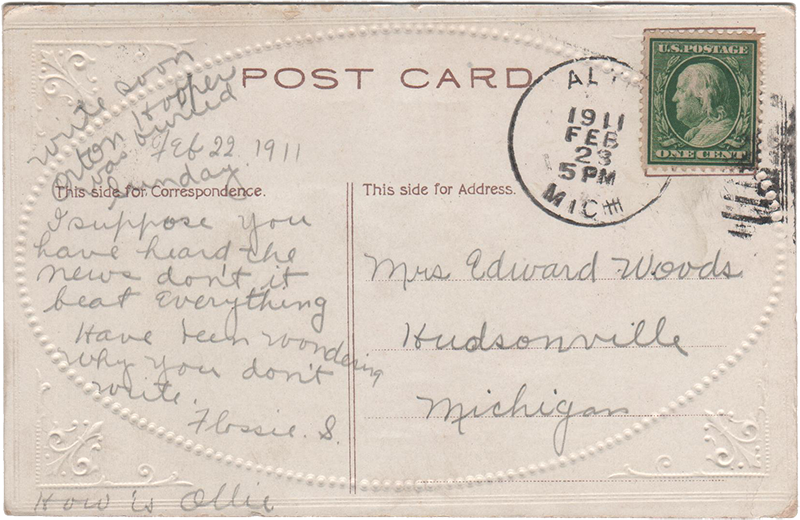 POST CARD
U.S. POSTAGE
ONE CENT
AL
1911
FEB
23
5 PM
MICH
write soon
Orton Hooper
was buried
Sunday
Feb 22 1911
This side for Correspondence.
I suppose you
have heard the
news don't it
beat everything
Have been wondering
why you don't
write.
Flossie. S.
How is Ollie
This side for Address.
Mrs Edward Woods
Hudsonville
Michigan